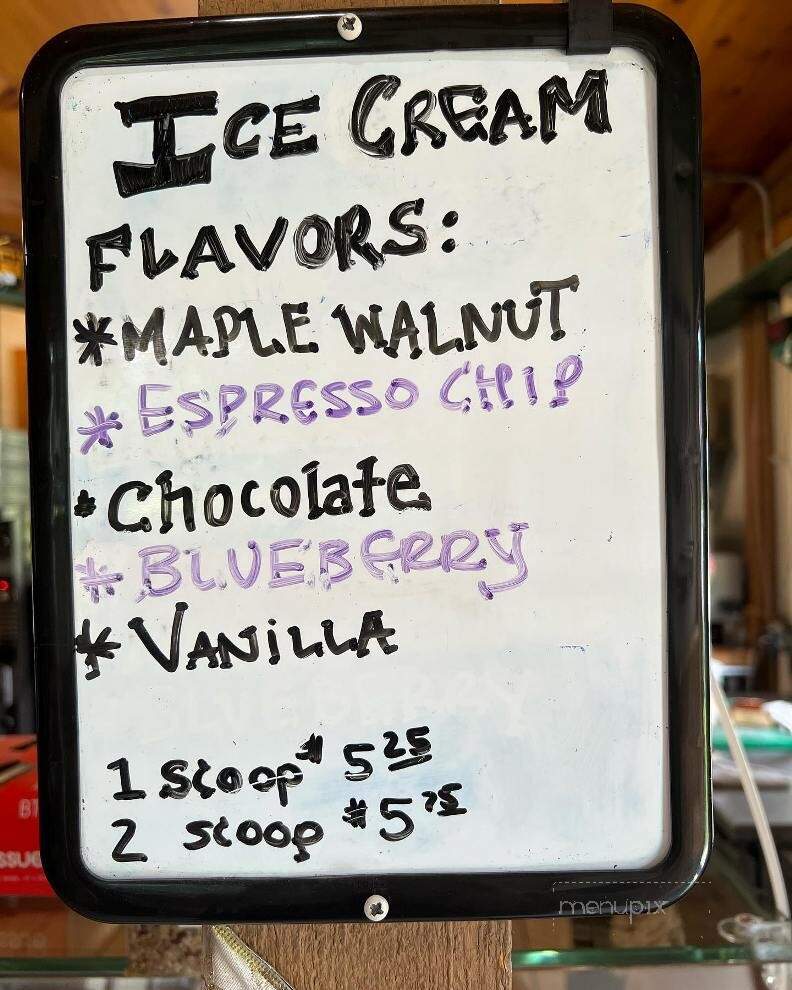 ICE CREAM
FLAVORS:
*MAPLE WALNUT
* ESPRESSO CHIP
*Chocolate
* BLUEBERRY
* VANILLA
BLUEBERRY
1 scoop $ 5 25
2 scoop $5 75
menupix